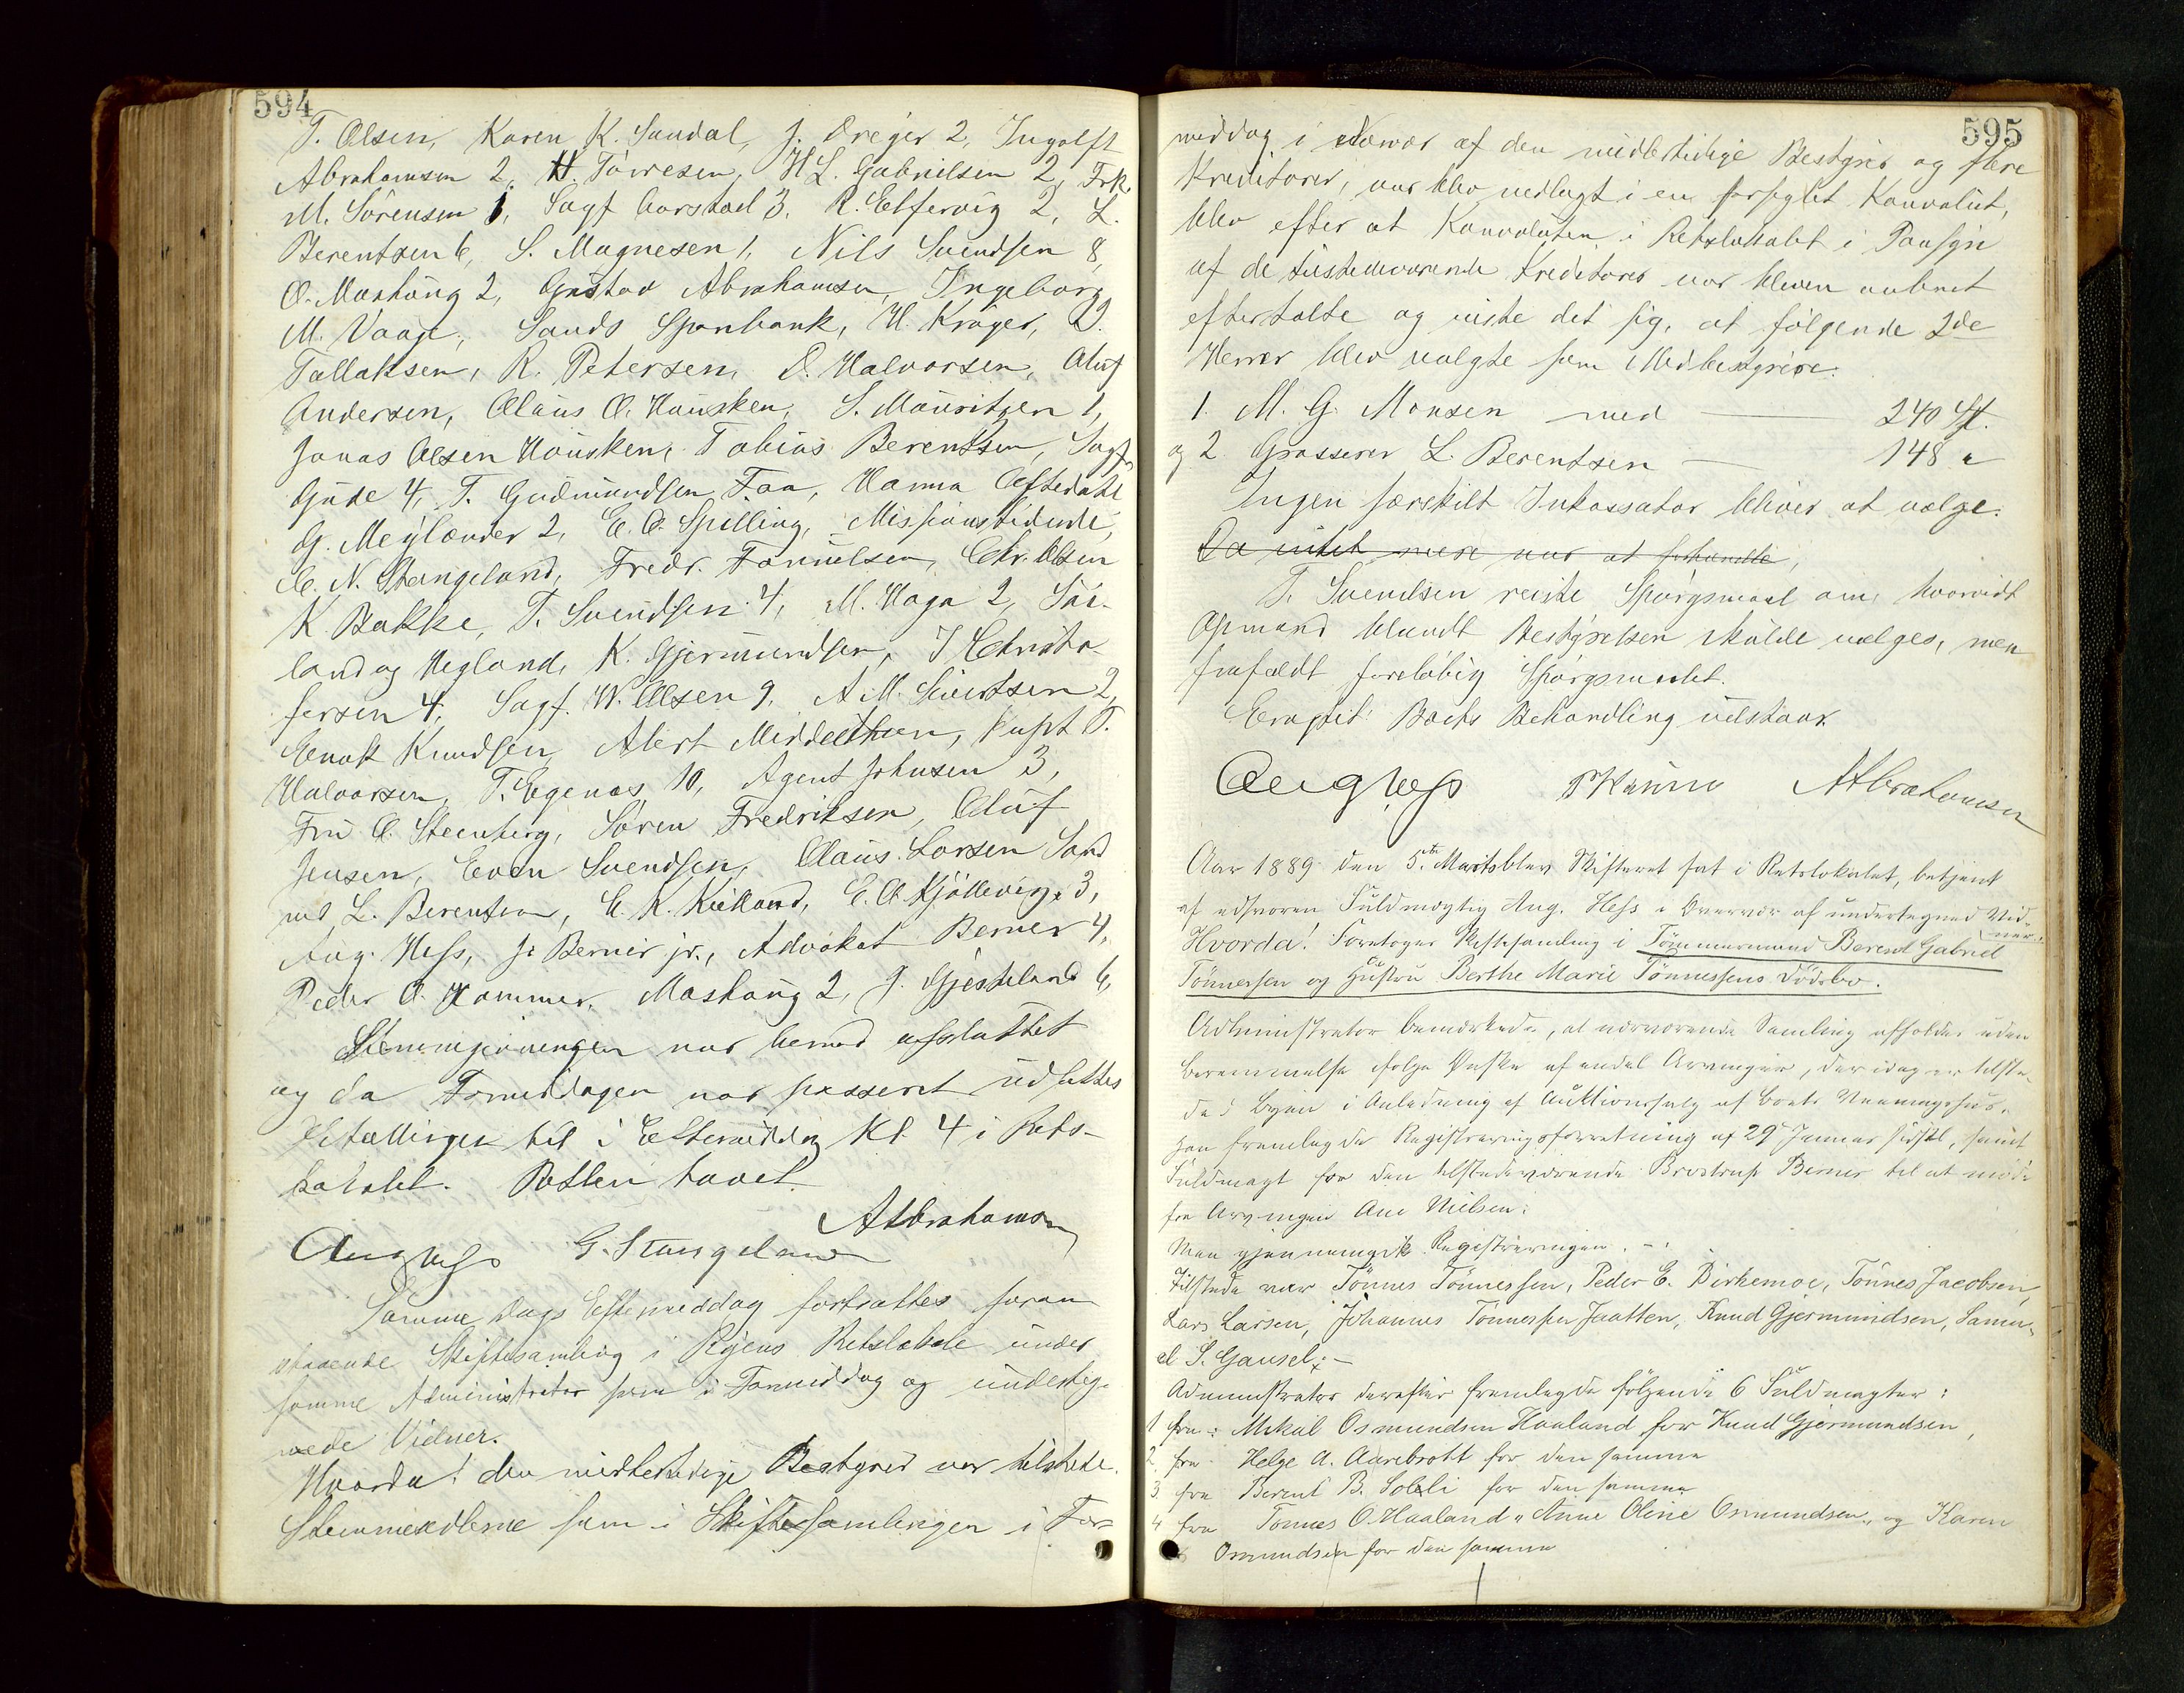 594
T. Olsen, Karen K. Sandal, J. Dreyer 2, Ingolft
Abrahamsen 2, H. Törresen, H. L. Gabrielsen 2, Frk.
M. Sörensen 1, Sagf Aarstad 3, R. Elfervig 2, L.
Berentsen 6, S. Magnesen 1, Nils Svendsen 8,
O. Mashaug 2, Gustav Abrahamsen, Ingeborg
M. Vaage, Sands Sparebank, H. Kröger, O.
Tallaksen, R. Petersen, O. Halvorsen, Oluf
Andersen, Olaus O. Hausken, S. Mauritzen 1,
Jonas Olsen Hausken, Tobias Berentsen, Sagf.
Gude 4, T. Gudmundsen Faa, Hanna Oftedahl
G. Meylænder 2, E. O. Spilling, Missionstidende,
C. N. Stangeland, Fredr. Jannielsen, Chr. Olsen
K. Bakke, T. Svendsen 4, M. Haga 2, Sæ-
land og Hegland, K. Gjermundsen, J Christo-
fersen 4, Sagf. W. Olsen 9, A. M. Sivertsen 2,
Enok Knudsen, Albert Middelthon, Kapt T.
Halvorsen, T. Egenæs 10, Agent Johnsen 3,
Fru O. Steenberg, Sören Fredriksen, Oluf
Jensen, Even Svendsen, Olaus Larsen Sand
ved L. Berentsen, E. K. Kielland, E. O. Kjöllevig 3,
Aug. Hess, Jr Berner jr., Advokat Berner 4,
Peder O. Hammer, Mashaug 2, J. Gjesteland 6,
Stemmgivningen var hermed afsluttet
og da Formiddagen var passeret udsattes
Optællingen til i Eftermiddag Kl. 4 i Rets-
lokalet. Retten hævet.
Abrahamsen
Aug Hess G. Stangeland
Samme Dags Eftermiddag fortsattes foran
staaende Skiftesamling i Byens Retslokale under
samme Administrator som i Formiddag og underteg-
nede Vidner.
Hvorda! den midlertidige Bestyrer var tilstede.
Stemmesedlerne som i Skiftesamlingen i For-
595
middag i Nærvær af den midlertidige Bestyrer og flere
Kreditorer, var blev nedlagt i en forseglet Konvolut,
blev efter at Konvoluten i Retslokalet i Paasyn
af de tilstedeværende Kreditorer var bleven aabnet
eftertalte og viste det sig, at følgende 2de
Herrer blev valgte som Medbestyrere:
1. M. G. Monsen med 240 St.
og 2 Grosserer L. Berentsen 148 "
Ingen særskilt Inkassator bliver at vælge.
Da intet mere var at forhandle,
T. Svendsen reiste Spörgsmaal om, hvorvidt
Opmand blandt Bestyrelsen skulde vælges, men
frafaldt forelöbig Spörgsmaalet.
Exraptit: Boets Behandling udstaar.
Aug Hess Abrahamsen
Aar 1889 den 5te Marts blev Skifteret sat i Retslokalet, betjent
af edsvoren Fuldmægtig Aug. Hess i Overvær af undertegned Vid-
ner.
Hvorda! Foretoges Skiftesamling i Tömmermand Berent Gabriel
Tönnesen og Hustru Berthe Marie Tönnessens Dödsbo.
Administrator bemærkede, at nærværende Samling afholdes uden
Berammelse ifölge Önske af endel Arvinger, der idag er tilste-
de i Byen i Anledning af Auktionssalg af Boets Vaaningshus.
Han fremlagde Registreringsforretning af 29 Januar sidstl, samt
Fuldmagt for den tilstedeværende Brostrup Berner til at möde
for Arvingen Ane Nielsen.
Man gjennemgik Registreringen. -
Tilstede var Tönnes Tönnessen, Peder E. Birkemoe, Tönnes Jacobsen,
Lars Larsen, Johannes Tönnessen Jaatten, Knud Gjermundsen, Samu-
el S. Gausel. -
Administrator derefter fremlagde fölgende 6 Fuldmagter:
1 fra: Mikal Osmundsen Haaland for Knud Gjermundsen,
2. fra Helge A. Aarebrott for den samme
3. fra Berent B. Solli for den samme
4 fra Tönnes O. Haaland, Anne Oline Osmundsen, og Karen
Osmundsen for den samme